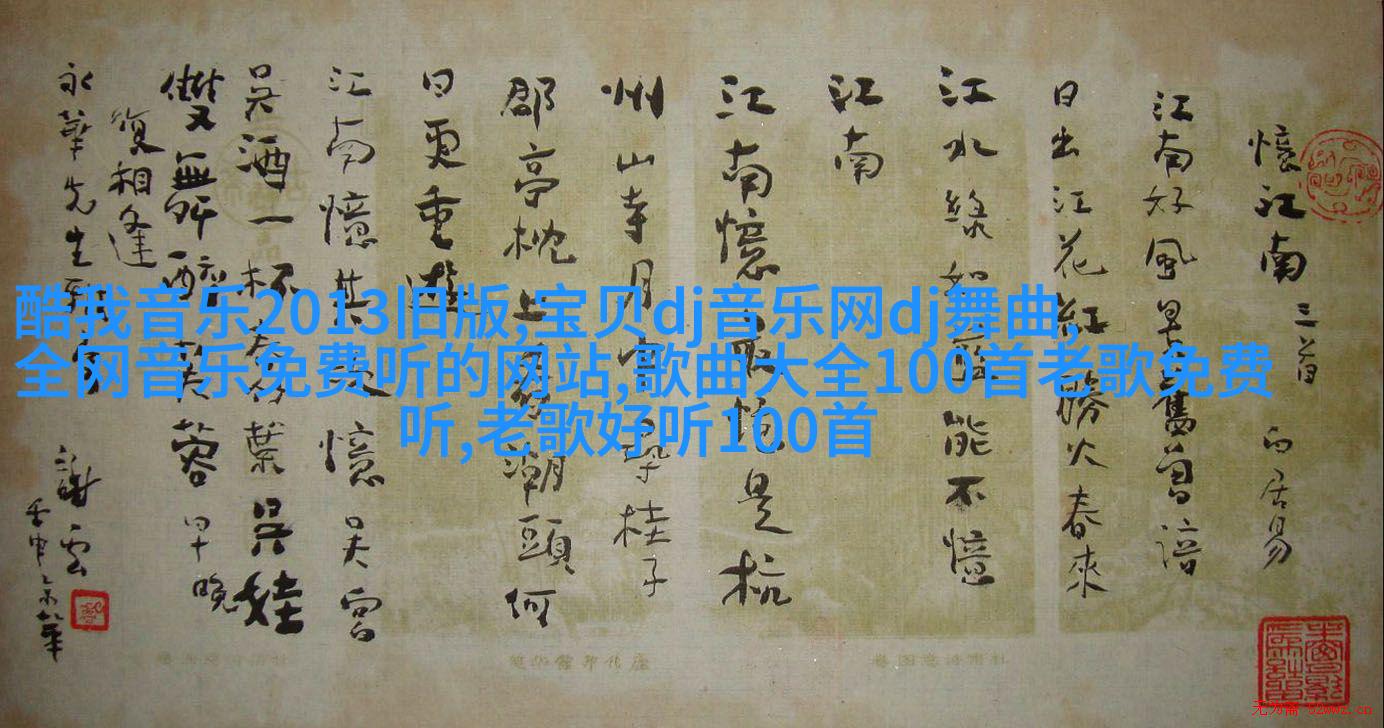 憶江南 三首 白居易
江南好風景舊曾諳
日出江花紅勝火春來
江水綠如藍能不憶
江南
江南憶最憶是杭
州山寺月中尋桂子
郡亭枕上看潮頭何
日更重遊
江南憶其次憶吳宮
吳酒一杯春竹葉吳娃
雙舞醉芙蓉早晚
復相逢
永華先生
謝雲
壬申京華
酷我音乐2013旧版,宝贝dj音乐网dj舞曲,
全网音乐免费听的网站,歌曲大全100首老歌免费
听,老歌好听100首
无为斋 52wwz.cn